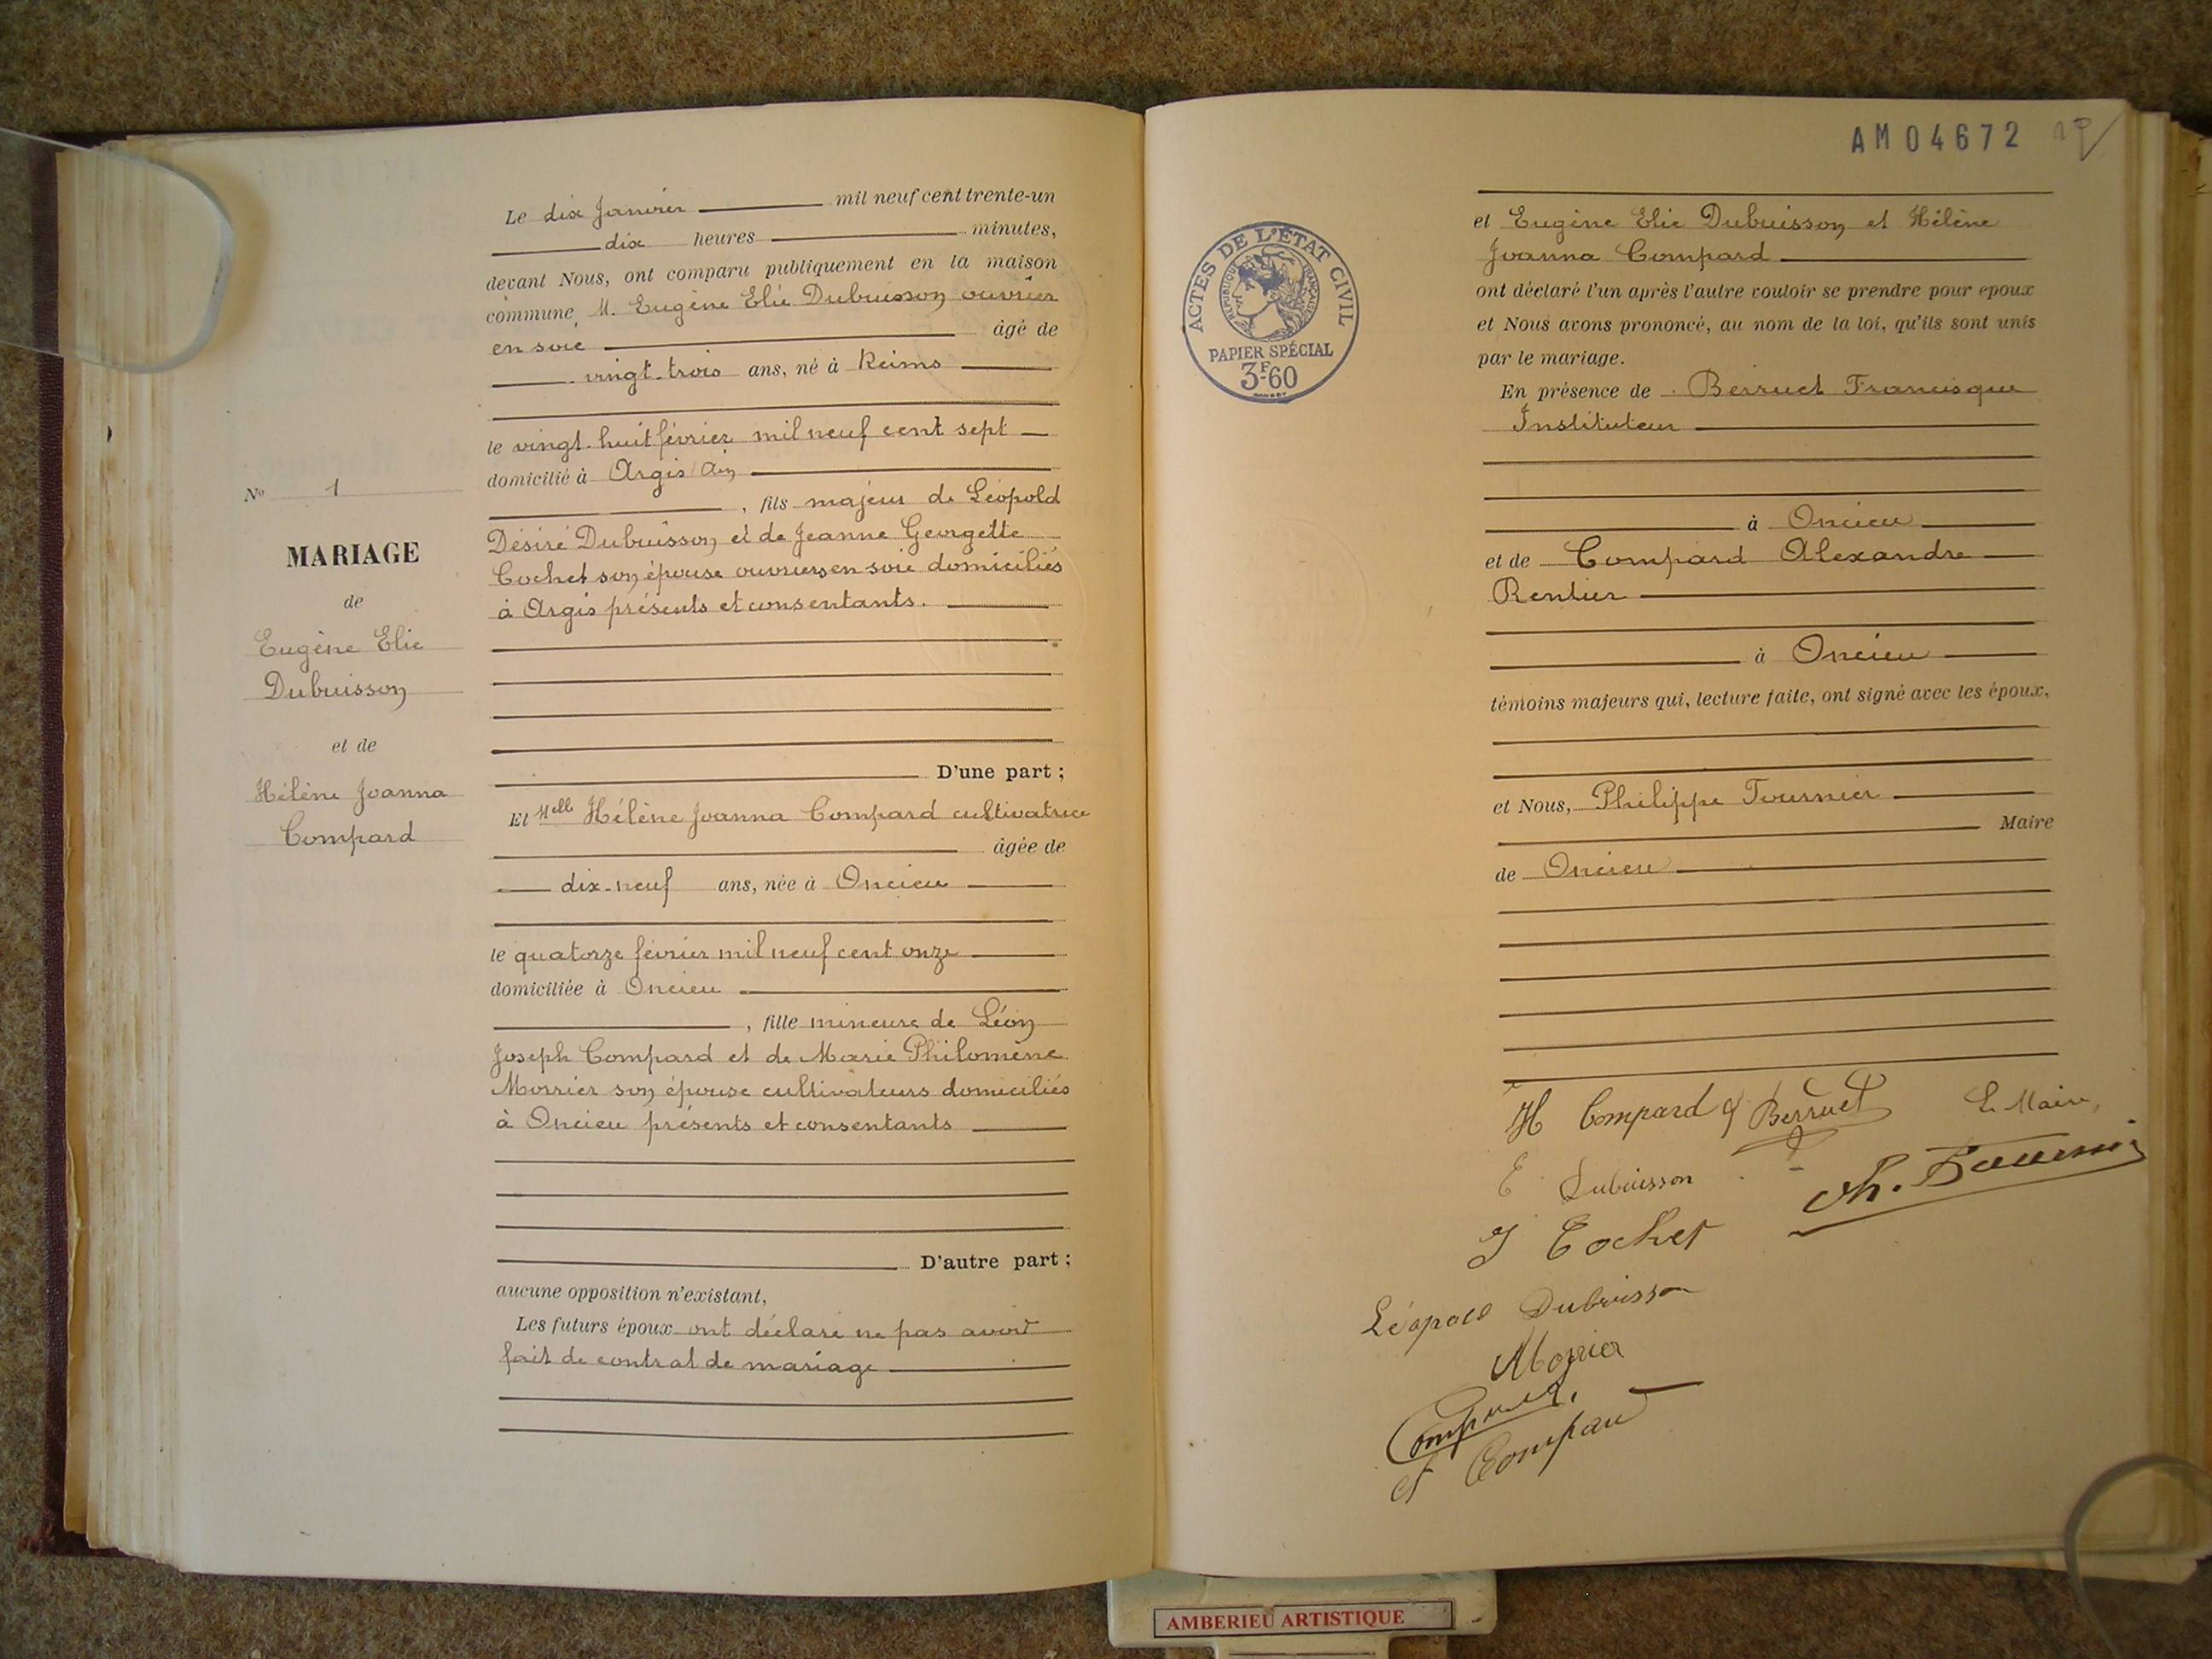 Nº 1
MARIAGE
de
Eugène Elie
Dubuisson
et de
Hélène Joanna
Compard
Le dix Janvier mil neuf cent trente-un
dix heures minutes,
devant Nous, ont comparu publiquement en la maison
commune, M. Eugène Elie Dubuisson ouvrier
en soie âgé de
vingt-trois ans, né à Reims
le vingt-huit février mil neuf cent sept
domicilié à Argis Ain
, fils majeur de Léopold
Désiré Dubuisson et de Jeanne Georgette
Cochet son épouse ouvriers en soie domiciliés
à Argis présents et consentants.
D'une part ;
Et Melle Hélène Joanna Compard cultivatrice
âgée de
dix-neuf ans, née à Oncieu
le quatorze février mil neuf cent onze
domiciliée à Oncieu
, fille mineure de Léon
Joseph Compard et de Marie Philomène
Morrier son épouse cultivateurs domiciliés
à Oncieu présents et consentants
D'autre part ;
aucune opposition n'existant,
Les futurs époux ont déclaré ne pas avoir
fait de contrat de mariage
AM04672
ACTES DE L'ÉTAT CIVIL
RÉPUBLIQUE FRANÇAISE
PAPIER SPÉCIAL
3F.60
et Eugène Elie Dubuisson et Hélène
Joanna Compard
ont déclaré l'un après l'autre vouloir se prendre pour époux
et Nous avons prononcé, au nom de la loi, qu'ils sont unis
par le mariage.
En présence de Berruet Francisque
Instituteur
à Oncieu
et de Compard Alexandre
Rentier
à Oncieu
témoins majeurs qui, lecture faite, ont signé avec les époux,
et Nous, Philippe Tournier
Maire
de Oncieu
H Compard Berruet Le Maire,
E Dubuisson Ph. Tournier
J Cochet
Léopold Dubuisson
Compard
AMBERIEU ARTISTIQUE